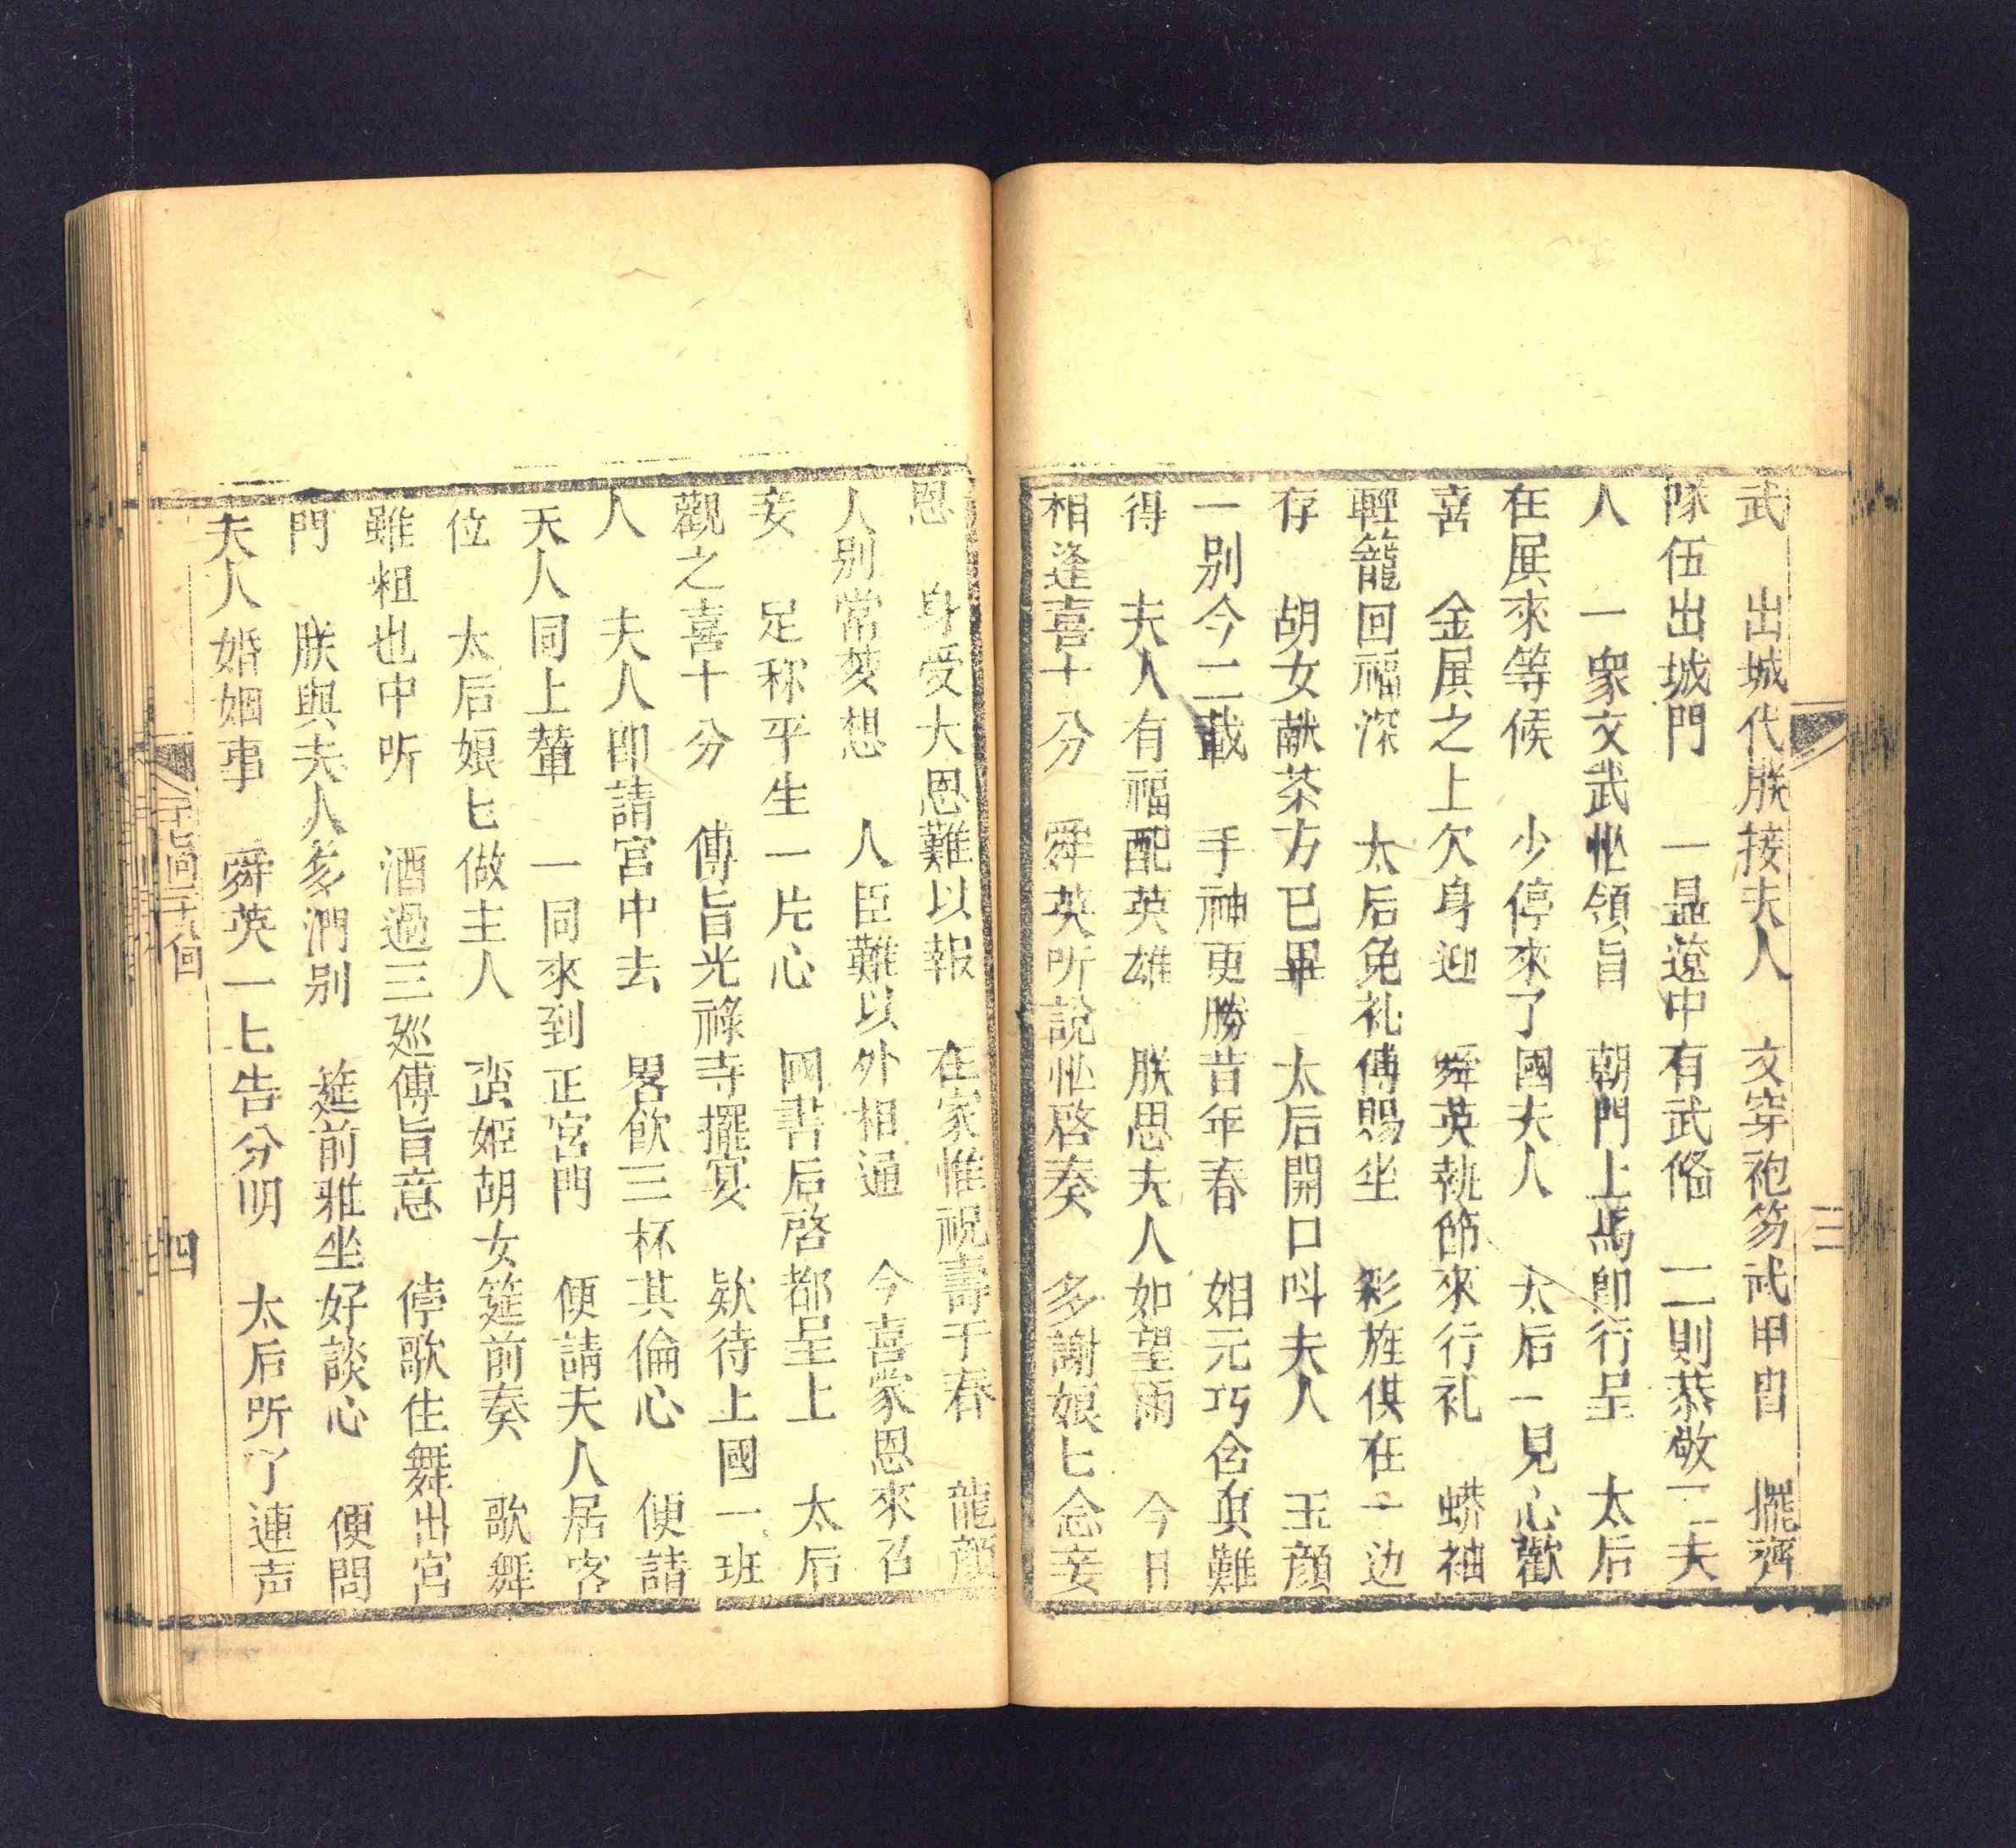 武　出城代朕接夫人　文穿袍笏武甲冑　擺齊
隊伍出城門　一显遼中有武俻　二則恭敬一夫
人　一衆文武忙領旨　朝門上馬卽行呈　太后
在展來等候　少停來了國夫人　太后一見心歡
喜　金展之上欠身迎　舜英執節來行礼　蟒袖
輕籠回福深　太后免礼傳賜坐　彩旌俱在一边
存　胡女献茶方已畢　太后開口呌夫人　玉顔
一别今二載　手神更勝昔年春　姐元巧舍真難
得　夫人有福配英雄　朕思夫人如望雨　今日
相逢喜十分　舜英听說忙啓奏　多謝娘匕念妾
恩　身受大恩難以報　在家惟祝壽千春　龍顔
人别常葵想　人臣難以外相通　今喜蒙恩來召
妾　足称平生一片心　國書后啓都呈上　太后
觀之喜十分　傳旨光祿寺擺宴　欵待上國一班
人　夫人卽請宮中去　畧飲三杯其倫心　便請
天人同上輦　一同來到正宮門　便請夫人居客
位　太后娘匕做主人　蛮姬胡女筵前奏　歌舞
雖粗也中听　酒過三廵傳旨意　停歌住舞出宮
門　朕與夫人多們别　筵前雅坐好談心　便問
夫人婚姻事　舜英一匕告分明　太后听了連声
三
四